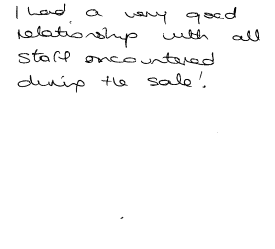 I had a very good
relationship with all
staff encountered
during the sale!